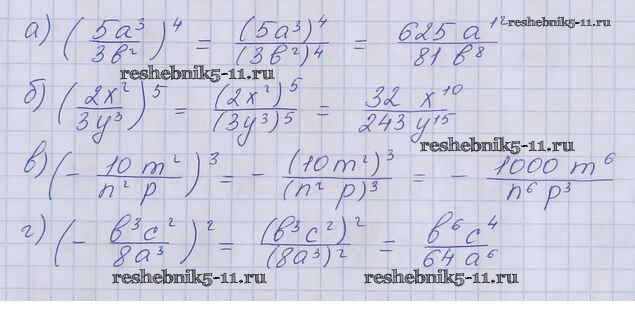 а) (5a³/3b²)⁴ = (5a³)⁴/(3b²)⁴ = 625 a¹²/81 b⁸
reshebnik5-11.ru
reshebnik5-11.ru
б) (2x²/3y³)⁵ = (2x²)⁵/(3y³)⁵ = 32 x¹⁰/243 y¹⁵
reshebnik5-11.ru
в) (- 10 m²/n² p)³ = - (10m²)³/(n² p)³ = - 1000 m⁶/n⁶ p³
г) (- b³c²/8a³)² = (b³c²)²/(8a³)² = b⁶c⁴/64 a⁶
reshebnik5-11.ru reshebnik5-11.ru